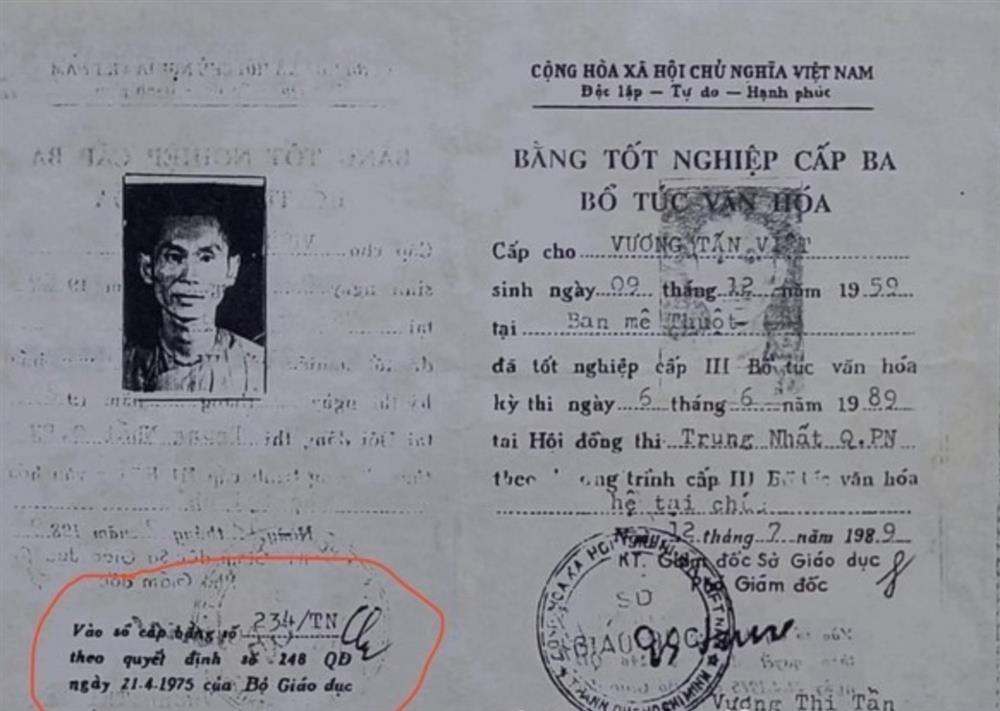 CỘNG HÒA XÃ HỘI CHỦ NGHĨA VIỆT NAM
Độc lập — Tự do — Hạnh phúc
BẰNG TỐT NGHIỆP CẤP BA
BỔ TÚC VĂN HÓA
Cấp cho VƯƠNG TẤN VIỆT
sinh ngày 09 tháng 12 năm 1959
tại Ban mê Thuột
đã tốt nghiệp cấp III Bổ túc văn hóa
kỳ thi ngày 6 tháng 6 năm 1989
tại Hội đồng thi Trung Nhất Q.PN
trình cấp III văn hóa
hệ tại
12 tháng 7 năm 1989
KT. Giám đốc Sở Giáo dục
Phó Giám đốc
SỞ
GIÁO DỤC
Vương Thị Tần
Vào sổ cấp bằng số 234/TN
theo quyết định số 248 QĐ
ngày 21-4-1975 của Bộ Giáo dục